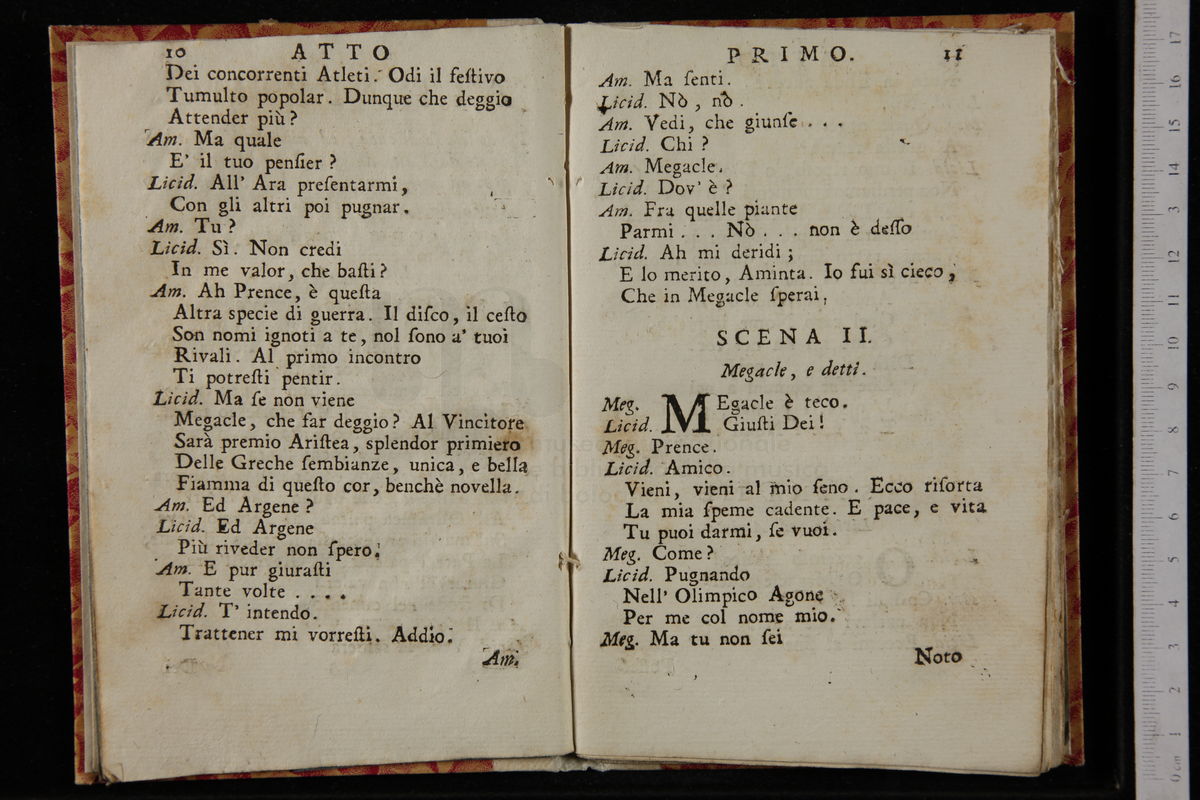 10 ATTO
Dei concorrenti Atleti. Odi il feſtivo
Tumulto popolar. Dunque che deggio
Attender più?
Am. Ma quale
E' il tuo penſier?
Licid. All' Ara preſentarmi,
Con gli altri poi pugnar.
Am. Tu?
Licid. Sì. Non credi
In me valor, che baſti?
Am. Ah Prence, è queſta
Altra specie di guerra. Il diſco, il ceſto
Son nomi ignoti a te, nol ſono a' tuoi
Rivali. Al primo incontro
Ti potreſti pentir.
Licid. Ma ſe non viene
Megacle, che far deggio? Al Vincitore
Sarà premio Ariſtea, splendor primiero
Delle Greche ſembianze, unica, e bella
Fiamma di queſto cor, benchè novella.
Am. Ed Argene?
Licid. Ed Argene
Più riveder non ſpero.
Am. E pur giuraſti
Tante volte ....
Licid. T' intendo.
Trattener mi vorreſti. Addio.
Am.
PRIMO. 11
Am. Ma ſenti.
Licid. Nò, nò.
Am. Vedi, che giunſe ...
Licid. Chi?
Am. Megacle.
Licid. Dov' è?
Am. Fra quelle piante
Parmi ... Nò ... non è deſſo
Licid. Ah mi deridi;
E lo merito, Aminta. Io fui sì cieco,
Che in Megacle ſperai.
SCENA II.
Megacle, e detti.
Meg. MEgacle è teco.
Licid. Giuſti Dei!
Meg. Prence.
Licid. Amico.
Vieni, vieni al mio ſeno. Ecco riſorta
La mia ſpeme cadente. E pace, e vita
Tu puoi darmi, ſe vuoi.
Meg. Come?
Licid. Pugnando
Nell' Olimpico Agone
Per me col nome mio.
Meg. Ma tu non ſei
Noto